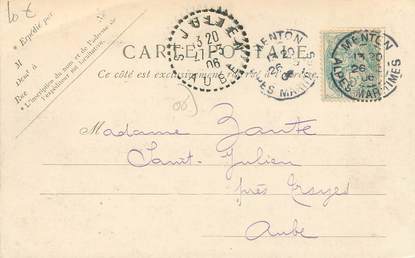 CARTE POSTALE
Ce côté est exclusivement réservé à l'adresse.
* Expédié par
M
Dem
Rue
* L'inscription du nom et de l'adresse de
l'expéditeur est facultative.
ST JULIEN
3 20
06
AUBE
MENTON
26
06
ALPES MARITIMES
MENTON
26
06
ALPES MARITIMES
Madame Zante
Saint-Julien
près Troyes
Aube